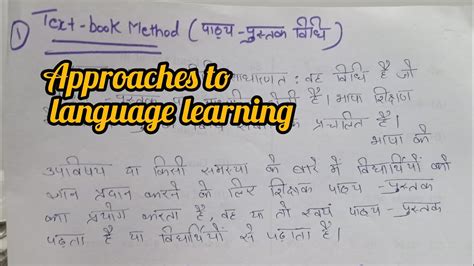 ① Text-book Method (पाठ्य-पुस्तक विधि)
साधारणत: वह विधि है जो
Approaches to
है। भाषा शिक्षण
language learning
प्रचलित है।
भाषा की
उपविषय या किसी समस्या के बारे में विद्यार्थियों को
ज्ञान प्रदान करने के लिए शिक्षक पाठ्य-पुस्तक
का प्रयोग करता है, वह या तो स्वयं पाठ्य-पुस्तक
पढ़ता है या विद्यार्थियों से पढ़ाता है।